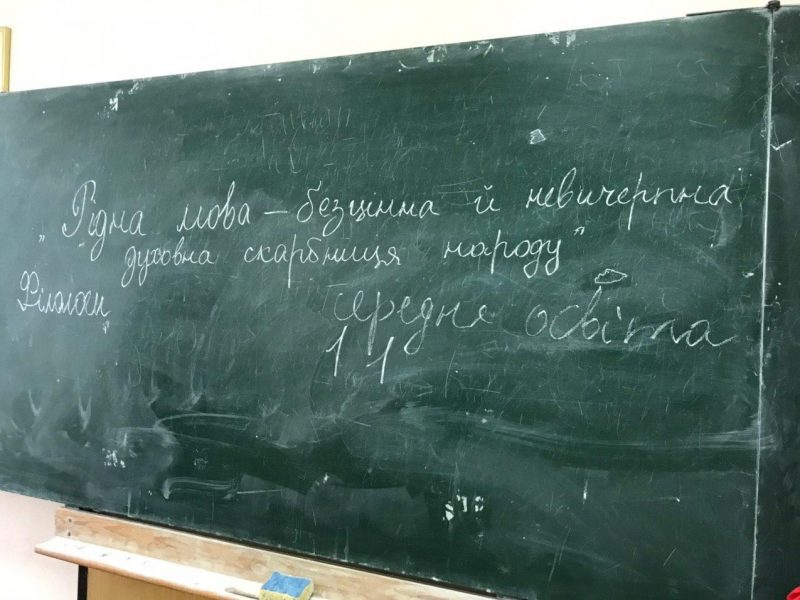 „Рідна мова – безцінна й невичерпна
духовна скарбниця народу"
Філологи
середня освіта
11